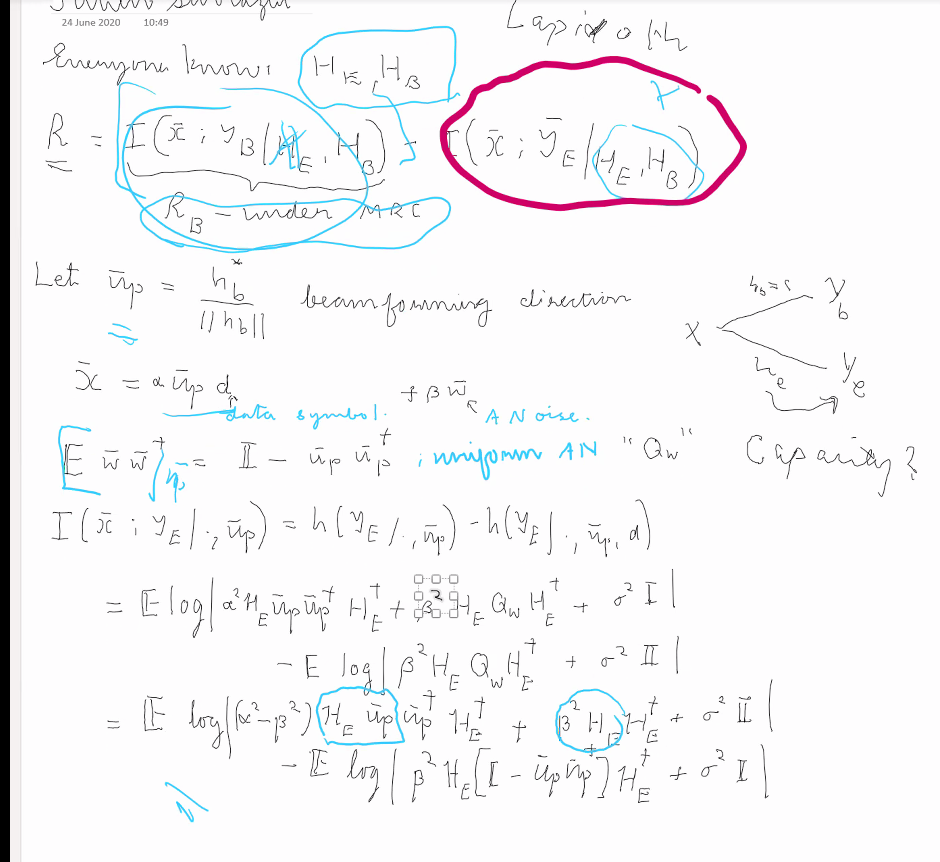 24 June 2020 10:49
Everyone knows H_E, H_B
R = I(x̄; y_B | H_E, H_B) - I(x̄; ȳ_E | H_E, H_B)
R_B - under MRC
Let ū_p = h_b^* / ||h_b|| beamforming direction
X h_b = y_b
h_e y_e
x̄ = α ū_p d + β w̄
data symbol. A Noise.
E w̄ w̄^† = I - ū_p ū_p^† ; uniform AN "Q_w" Capacity?
I(x̄; y_E | ·, ū_p) = h(y_E | ·, ū_p) - h(y_E | ·, ū_p, d)
= E log | α² H_E ū_p ū_p^† H_E^† + β² H_E Q_w H_E^† + σ² I |
- E log | β² H_E Q_w H_E^† + σ² I |
= E log | (α² - β²) H_E ū_p ū_p^† H_E^† + β² H_E H_E^† + σ² I |
- E log | β² H_E [I - ū_p ū_p^†] H_E^† + σ² I |